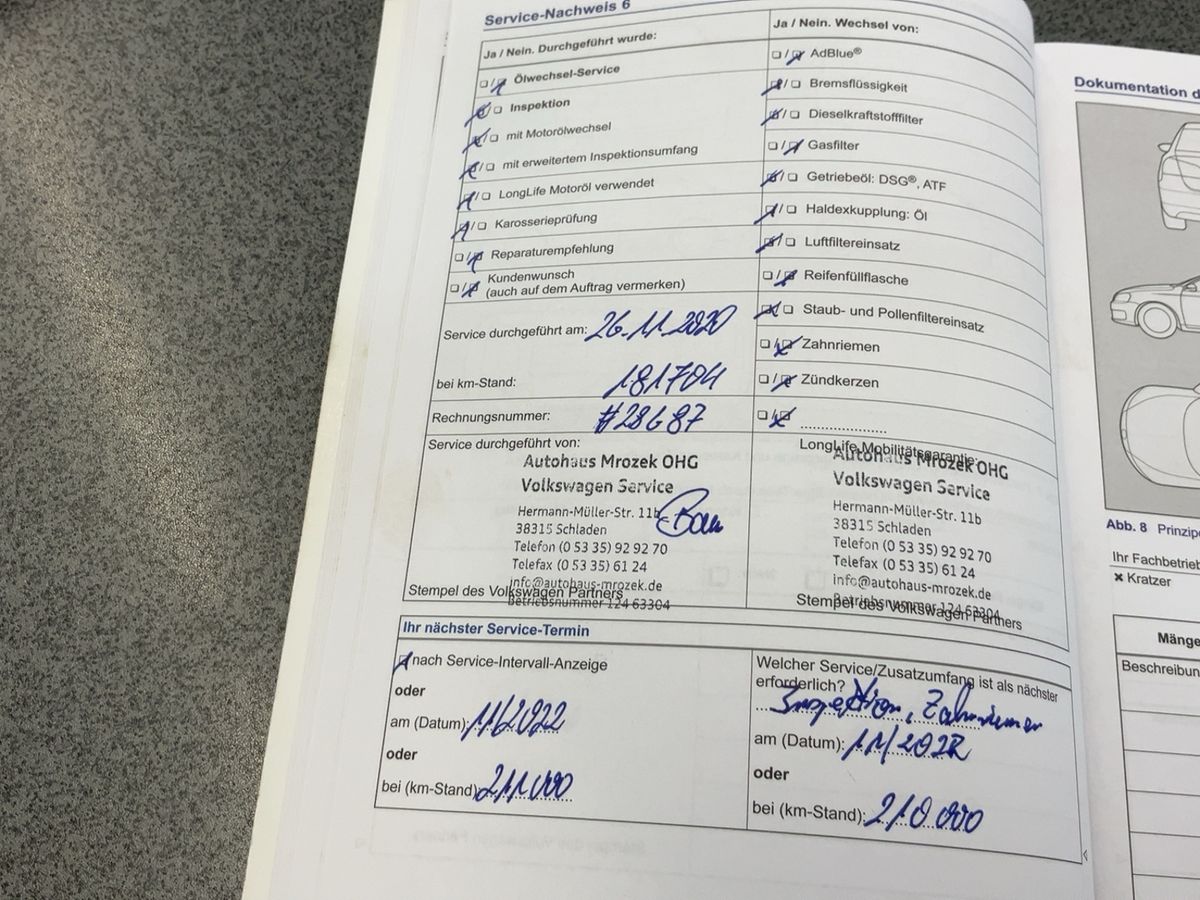 Service-Nachweis 6
Ja / Nein. Durchgeführt wurde:
Ölwechsel-Service
Inspektion
mit Motorölwechsel
mit erweitertem Inspektionsumfang
LongLife Motoröl verwendet
Karosserieprüfung
Reparaturempfehlung
Kundenwunsch
(auch auf dem Auftrag vermerken)
Service durchgeführt am: 26.11.2020
bei km-Stand: 181704
Rechnungsnummer: #28687
Service durchgeführt von:
Autohaus Mrozek OHG
Volkswagen Service
Hermann-Müller-Str. 11b
38315 Schladen
Telefon (0 53 35) 92 92 70
Telefax (0 53 35) 61 24
info@autohaus-mrozek.de
Betriebsnummer 124 63304
Stempel des Volkswagen Partners
Ja / Nein. Wechsel von:
AdBlue®
Bremsflüssigkeit
Dieselkraftstofffilter
Gasfilter
Getriebeöl: DSG®, ATF
Haldexkupplung: Öl
Luftfiltereinsatz
Reifenfüllflasche
Staub- und Pollenfiltereinsatz
Zahnriemen
Zündkerzen
LongLife Mobilitätsgarantie:
Autohaus Mrozek OHG
Volkswagen Service
Hermann-Müller-Str. 11b
38315 Schladen
Telefon (0 53 35) 92 92 70
Telefax (0 53 35) 61 24
info@autohaus-mrozek.de
Betriebsnummer 124 63304
Stempel des Volkswagen Partners
Ihr nächster Service-Termin
nach Service-Intervall-Anzeige
oder
am (Datum): 11/2022
oder
bei (km-Stand) 211.000
Welcher Service/Zusatzumfang ist als nächster
erforderlich?
Inspektion, Zahnriemen
am (Datum): 11/2022
oder
bei (km-Stand): 210.000
Dokumentation d
Abb. 8 Prinzip
Ihr Fachbetrieb
× Kratzer
Mänge
Beschreibun